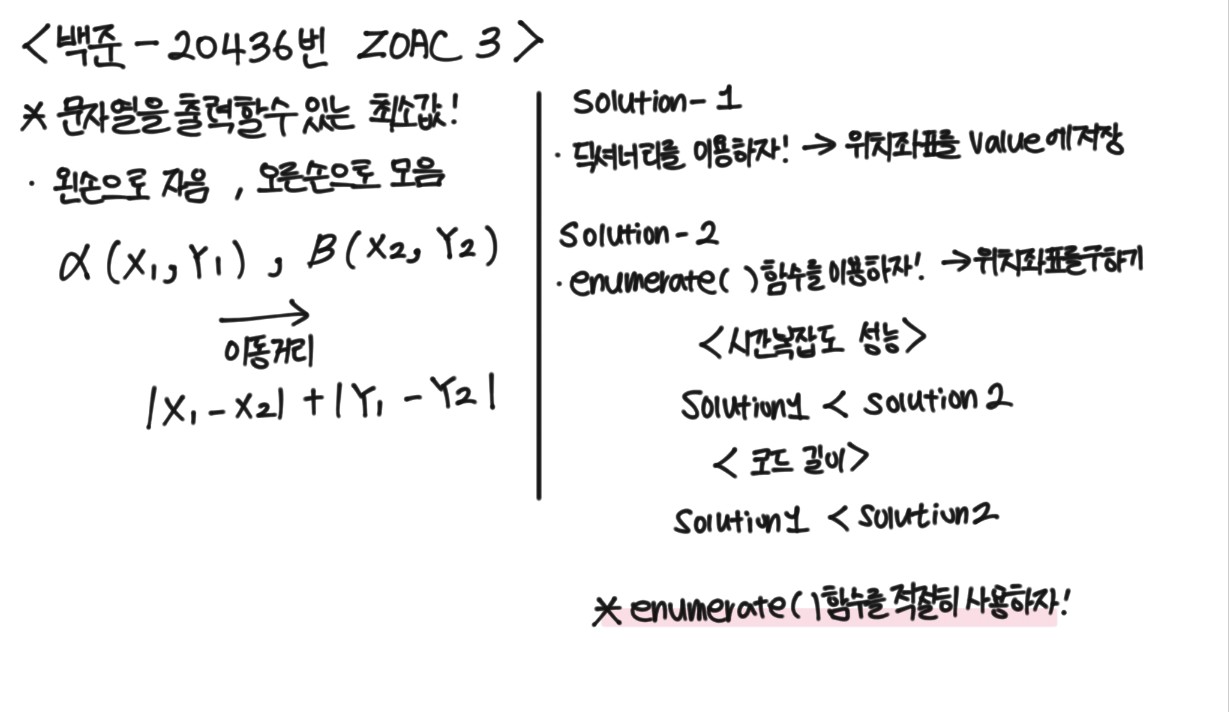 <백준 - 20436번 ZOAC 3>
* 문자열을 출력할수 있는 최소값!
· 왼손으로 자음 , 오른손으로 모음
α(X₁, Y₁) , B(X₂, Y₂)
→
이동거리
|X₁ - X₂| + |Y₁ - Y₂|
Solution - 1
· 딕셔너리를 이용하자! → 위치좌표를 Value에 저장
Solution - 2
· enumerate( ) 함수를 이용하자! → 위치좌표를 구하기
<시간복잡도 성능>
Solution1 < Solution 2
< 코드 길이>
Solution1 < Solution2
* enumerate( ) 함수를 적절히 사용하자!